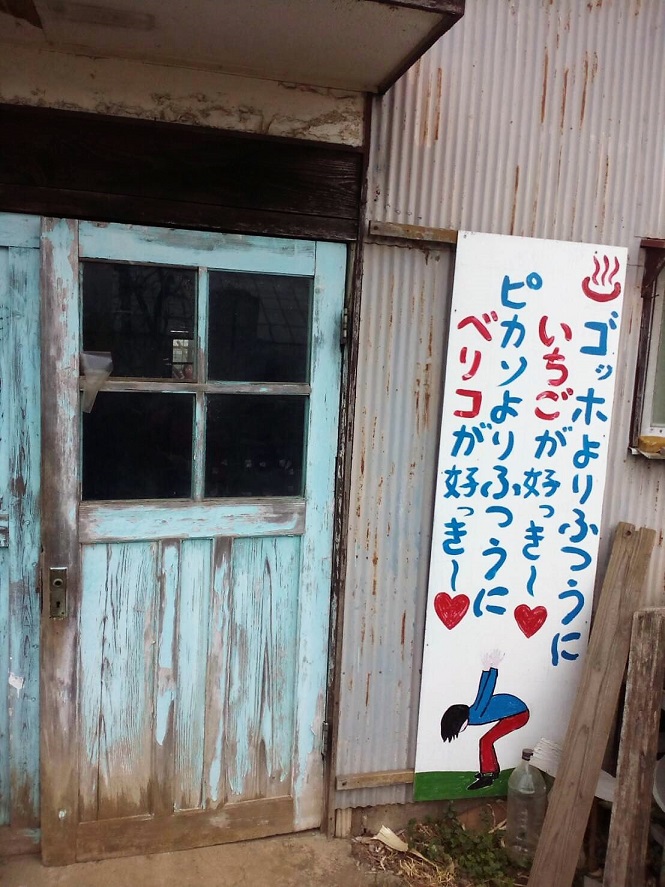 ゴッホよりふつうに
いちごが好っき〜
ピカソよりふつうに
ベリコが好っき〜